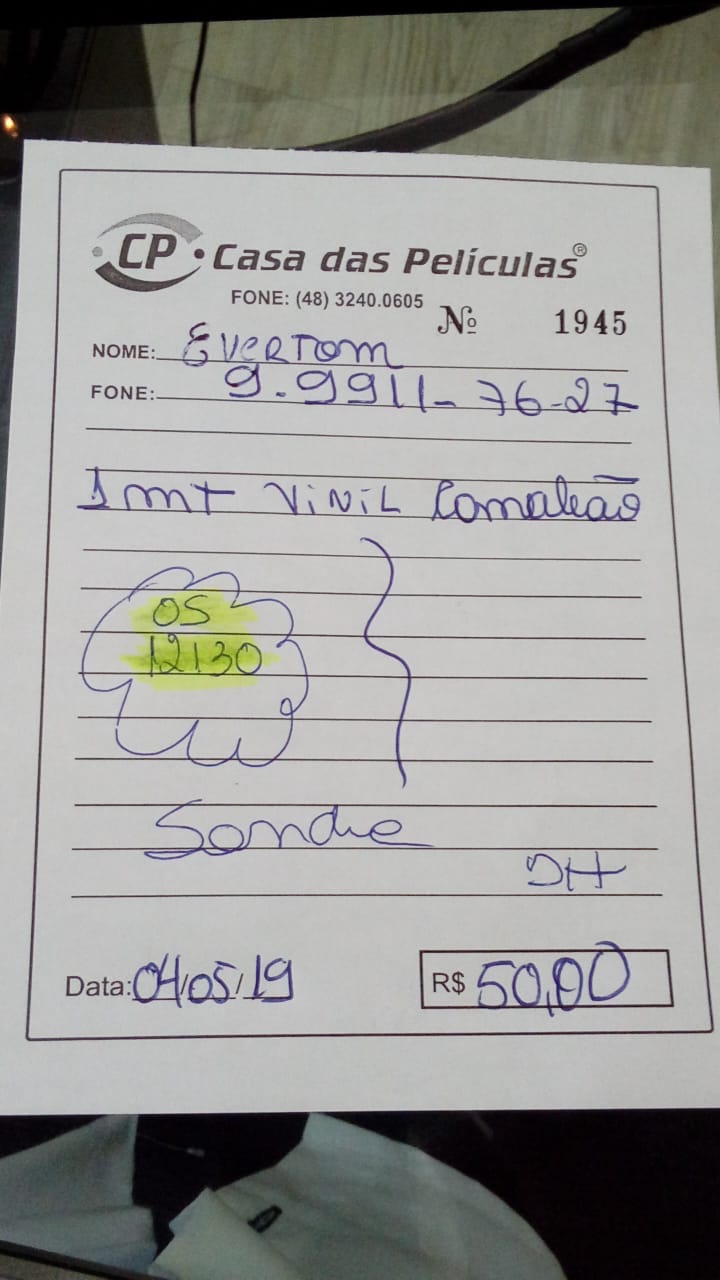 CP • Casa das Películas®
FONE: (48) 3240.0605
Nº 1945
NOME: Evertom
FONE: 9.9911-76-27
1 mt Vinil Camaleão
OS
12130
Sandre
DH
Data: 04/05/19
R$ 50,00